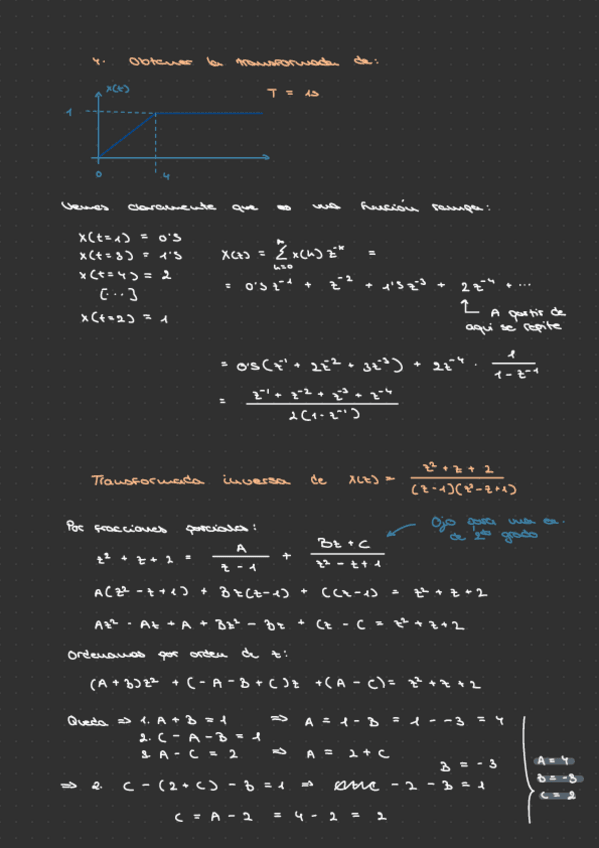 4. Obtener la transformada de:
x(t)
T = 1s
1
0
4
Vemos claramente que es una función rampa:
x(t=1) = 0's
x(t=3) = 1's
x(t=4) = 2
[...]
x(t=2) = 1
X(z) = Σ x(k) z⁻ᵏ =
k=0
= 0's z⁻¹ + z⁻² + 1's z⁻³ + 2z⁻⁴ + ...
A partir de
aquí se repite
= 0's(z⁻¹ + 2z⁻² + 3z⁻³) + 2z⁻⁴ · 1 / (1 - z⁻¹)
= (z⁻¹ + z⁻² + z⁻³ + z⁻⁴) / (2(1 - z⁻¹))
Transformada inversa de X(z) = (z² + z + 2) / ((z-1)(z²-z+1))
Por fracciones parciales:
Ojo para una ec.
de 2º grado
z² + z + 2 = A / (z - 1) + (Bz + C) / (z² - z + 1)
A(z² - z + 1) + Bz(z-1) + C(z-1) = z² + z + 2
Az² - Az + A + Bz² - Bz + Cz - C = z² + z + 2
Ordenamos por orden de z:
(A + B)z² + (-A - B + C)z + (A - C) = z² + z + 2
Queda ⇒ 1. A + B = 1 ⇒ A = 1 - B = 1 - -3 = 4
2. C - A - B = 1
3. A - C = 2 ⇒ A = 2 + C
B = -3
⇒ 2. C - (2 + C) - B = 1 ⇒ - 2 - B = 1
C = A - 2 = 4 - 2 = 2
A = 4
B = -3
C = 2